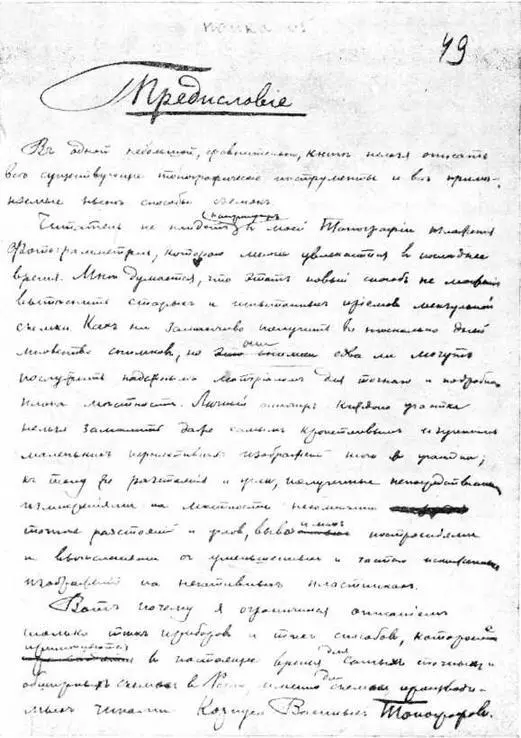 49
Предисловіе
Въ одной небольшой, сравнительно, книгѣ нельзя описать
всѣ существующіе топографическіе инструменты и всѣ примѣ-
няемые нынѣ способы съемокъ.
Читатель не найдетъ напримѣръ въ моей Топографіи изложенія
Фотограмметріи, которою многіе увлекаются въ последнее
время. Мнѣ думается, что этотъ новый способъ не можетъ
вытѣснить старыхъ и испытанныхъ пріемовъ мензульной
съемки. Какъ ни заманчиво получить въ нѣсколько дней
множество снимковъ, но они едва ли могутъ
послужить надежнымъ матеріаломъ для точнаго и подробнаго
плана мѣстности. Личный осмотръ каждаго участка
нельзя замѣнить даже самымъ кропотливымъ изученіемъ
маленькихъ перспективныхъ изображеній того участка;
къ тому же разстоянія и углы, полученные непосредственными
измѣреніями на мѣстности несомнѣнно
точнѣе разстояній и угловъ, построеніями
и вычисленіями съ уменьшенныхъ и часто
изображеній на негативныхъ пластинкахъ.
Вотъ почему я ограничился описаніемъ
только тѣхъ приборовъ и тѣхъ способовъ, которые
применяются въ настоящее время для самыхъ точныхъ и
обширныхъ съемокъ въ Россіи, именно для съемокъ производи-
мыхъ чинами Корпуса Военныхъ Топографовъ.